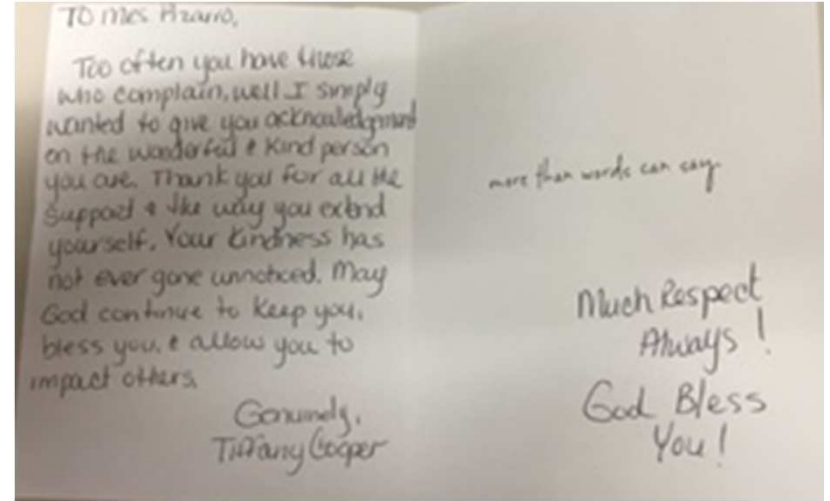 TO Mrs Pizarro,
Too often you have those
who complain, well I simply
wanted to give you acknowledgment
on the wonderful & kind person
you are. Thank you for all the
support & the way you extend
yourself. Your kindness has
not ever gone unnoticed. May
God continue to keep you,
bless you, & allow you to
impact others.
Genuinely,
Tiffany Cooper
more than words can say
Much Respect
Always!
God Bless
You!